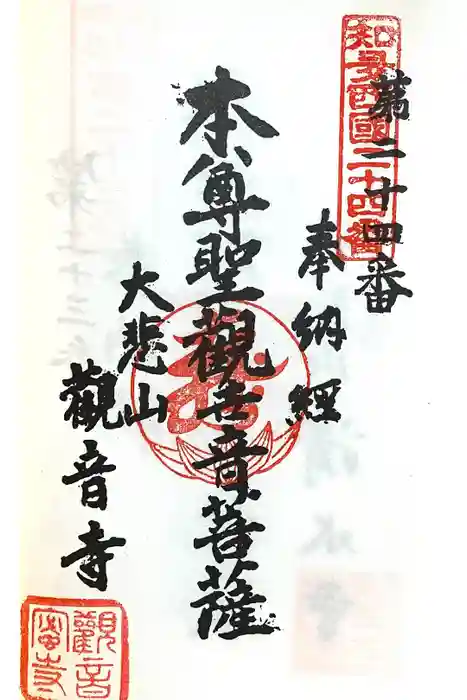 知多西國二十四番
第二十四番
奉納經
本尊聖觀世音菩薩
大悲山
觀音寺
觀音寺